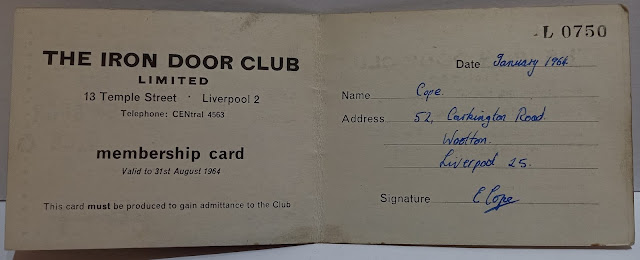 THE IRON DOOR CLUB
LIMITED
13 Temple Street · Liverpool 2
Telephone: CENtral 4563
membership card
Valid to 31st August 1964
This card must be produced to gain admittance to the Club
L 0750
Date January 1964.
Name Cope.
Address 52, Carkington Road.
Woolton.
Liverpool 25.
Signature E Cope